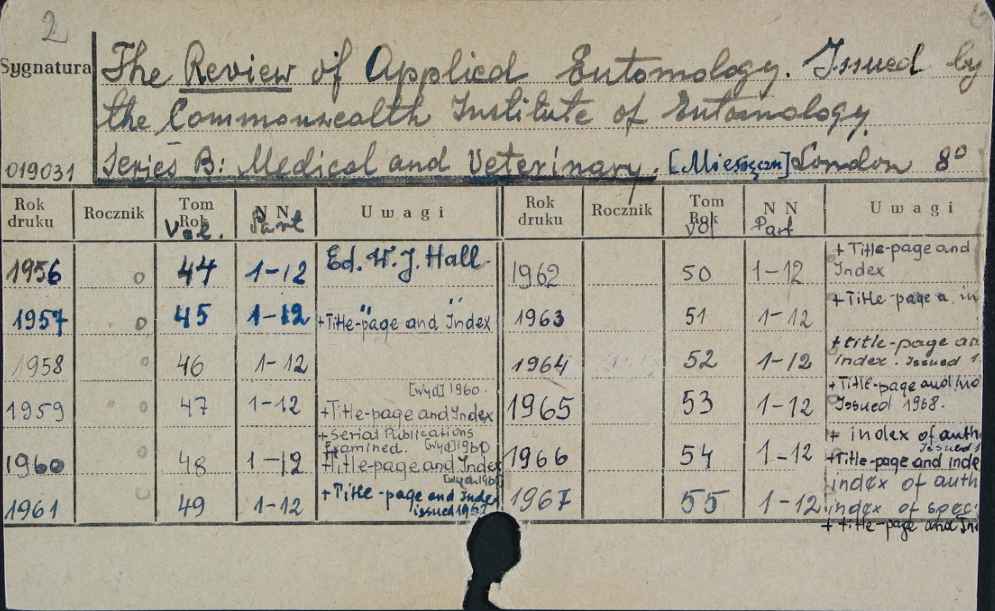 2
Sygnatura
The Review of Applied Entomology. Issued by
the Commonwealth Institute of Entomology.
019031
Series B: Medical and Veterinary. [Miesięczn] London 8°
Rok druku Rocznik Tom Rok Vol. N N Part Uwagi Rok druku Rocznik Tom Rok Vol N N Part Uwagi
1956 0 44 1-12 Ed. W. J. Hall
1957 0 45 1-12 " "
+Title-page and Index
1958 0 46 1-12
1959 0 47 1-12 [wyd] 1960.
+Title-page and Index
1960 0 48 1-12 +Serial Publications
Examined. [wyd] 1960
+Title-page and Index
1961 0 49 1-12 +Title-page and Index
issued 1967
1962 50 1-12 + Title-page and
Index
1963 51 1-12 +Title-page a. in
1964 52 1-12 +title-page an
index. Issued 1.
1965 53 1-12 +Title-page and ind
Issued 1968.
1966 54 1-12 + index of auth
Issued
+Title-page and inde
1967 55 1-12 index of auth
index of spec
+ title-page and In